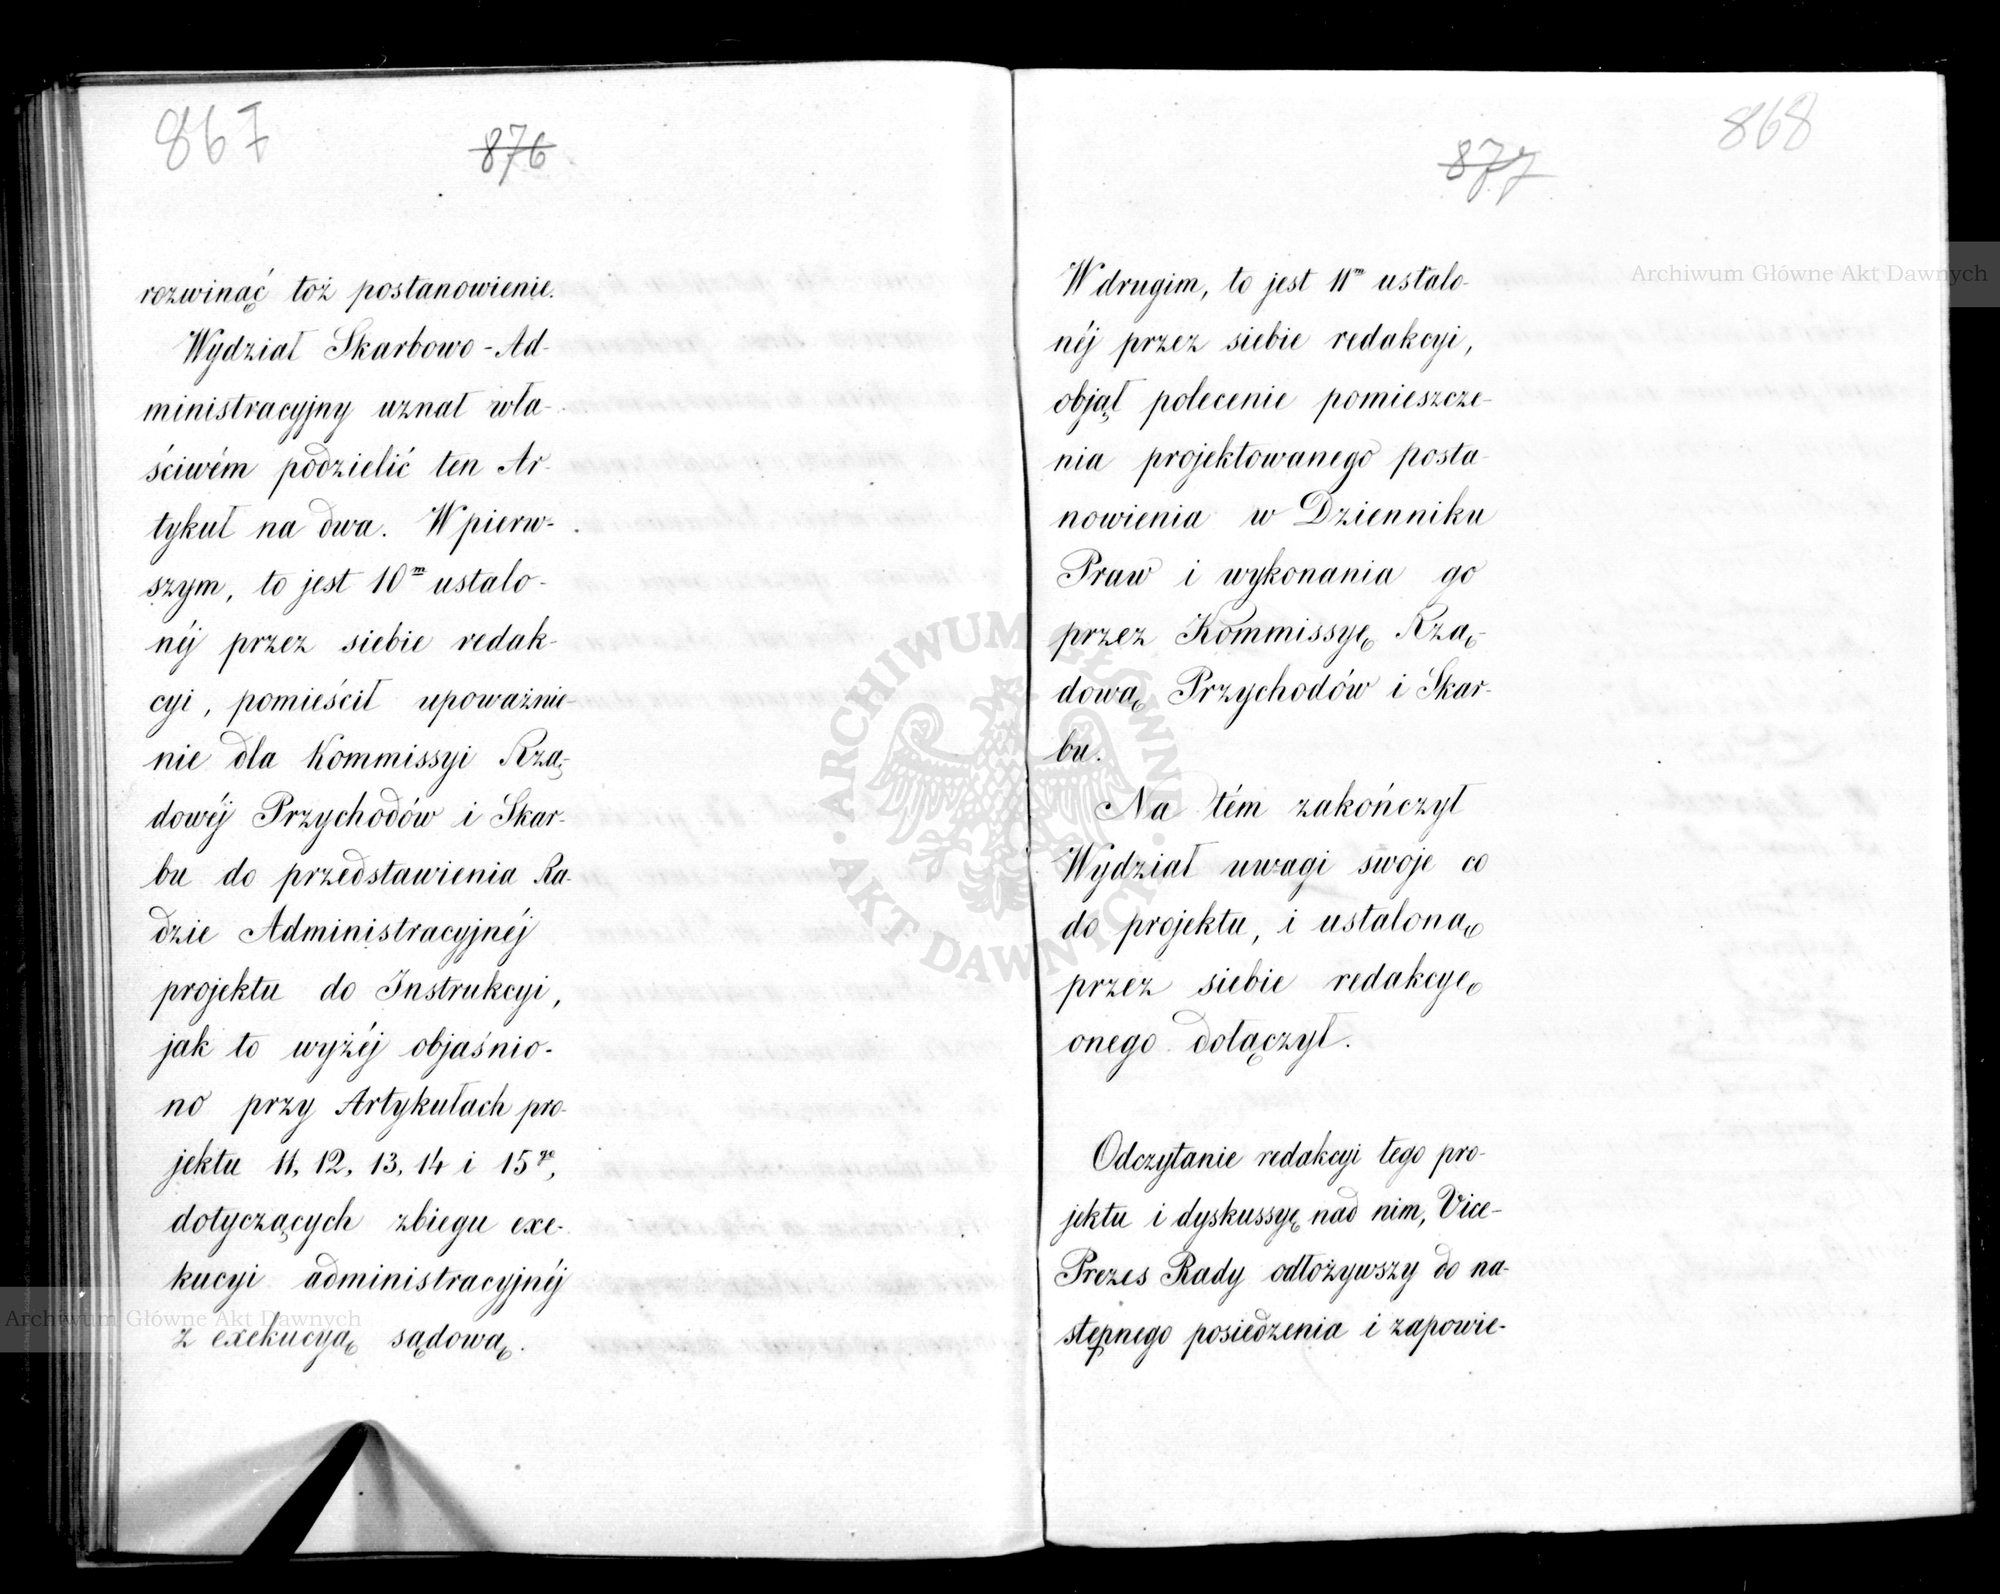 867
876
rozwinąć toż postanowienie.
Wydział Skarbowo-Ad-
ministracyjny uznał wła-
ściwém podzielić ten Ar-
tykuł na dwa. W pierw-
szym, to jest 10m ustalo-
néj przez siebie redak-
cyi, pomieścił upoważnie-
nie dla Kommissyi Rzą-
dowéj Przychodów i Skar-
bu do przedstawienia Ra-
dzie Administracyjnéj
projektu do Instrukcyi,
jak to wyżéj objaśnio-
no przy Artykułach pro-
jektu 11, 12, 13, 14 i 15go,
dotyczących zbiegu exe-
kucyi administracyjnéj
z exekucyą sądową.
868
877
W drugim, to jest 11m ustalo-
néj przez siebie redakcyi,
objął polecenie pomieszcze-
nia projektowanego posta-
nowienia w Dzienniku
Praw i wykonania go
przez Kommissyę Rzą-
dową Przychodów i Skar-
bu.
Na tém zakończył
Wydział uwagi swoje co
do projektu, i ustaloną
przez siebie redakcyę
onego dołączył.
Odczytanie redakcyi tego pro-
jektu i dyskussyę nad nim, Vice-
Prezes Rady odłożywszy do na-
stępnego posiedzenia i zapowie-
Archiwum Główne Akt Dawnych
Archiwum Główne Akt Dawnych
ARCHIWUM GŁÓWNE · AKT DAWNYCH ·